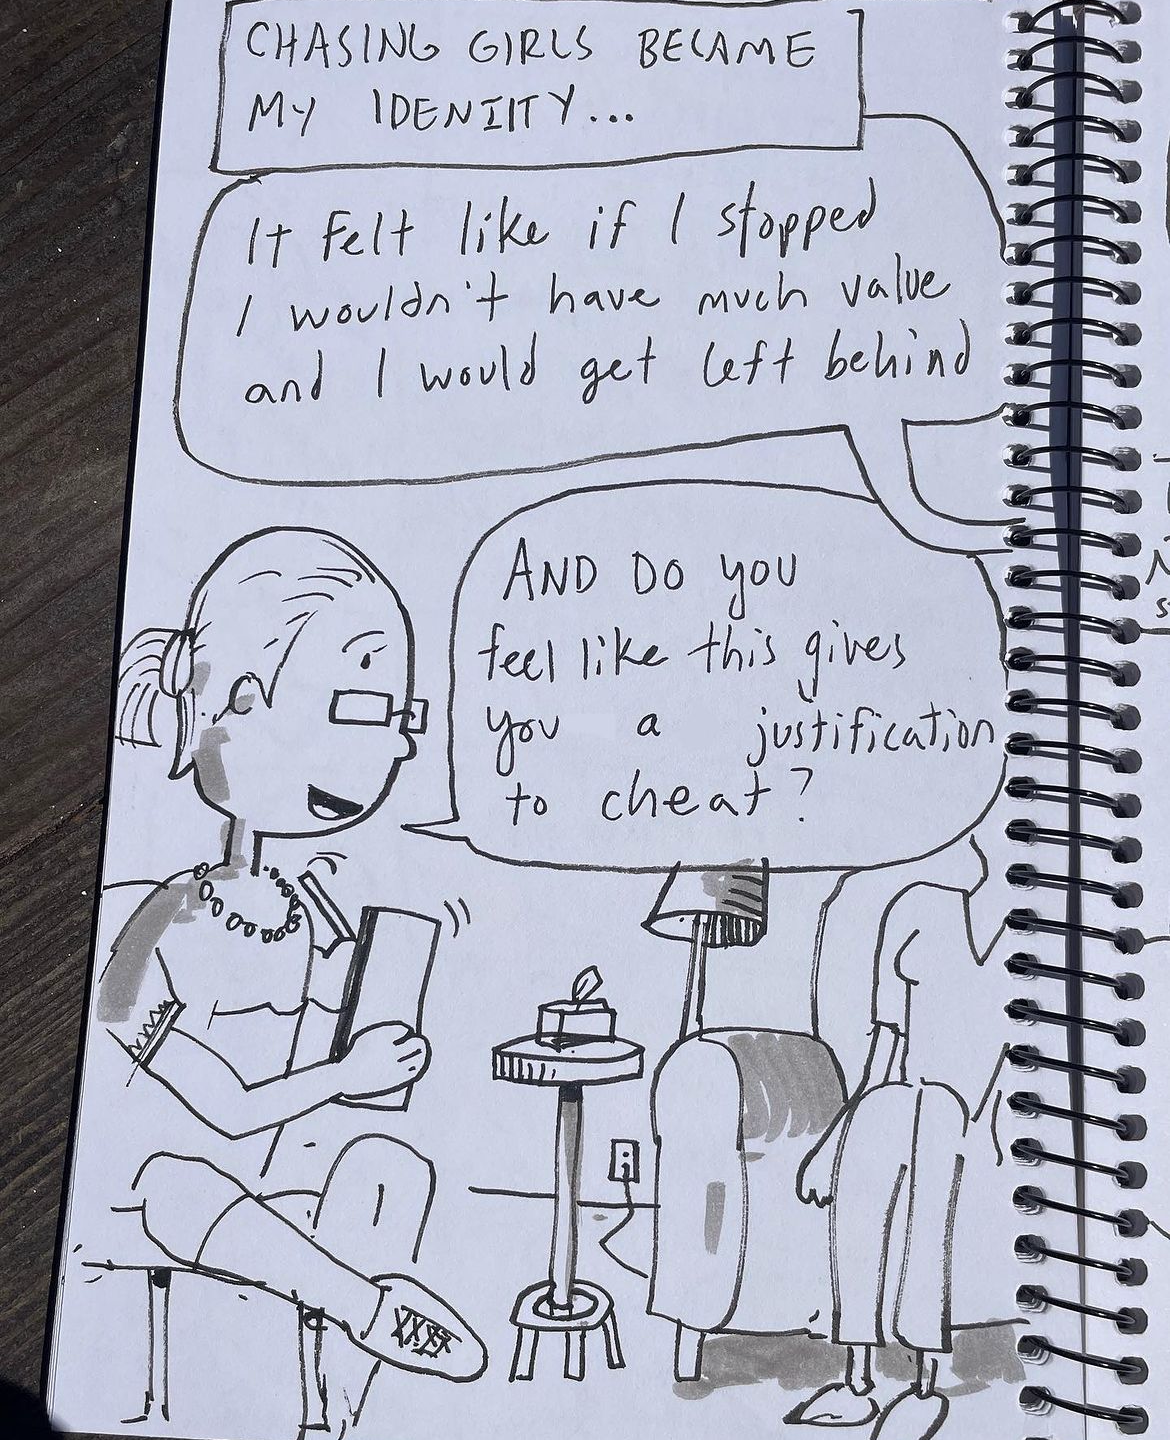 CHASING GIRLS BECAME
MY IDENIITY...
It felt like if I stopped
I wouldn't have much value
and I would get left behind
AND DO YOU
feel like this gives
you a justification
to cheat?